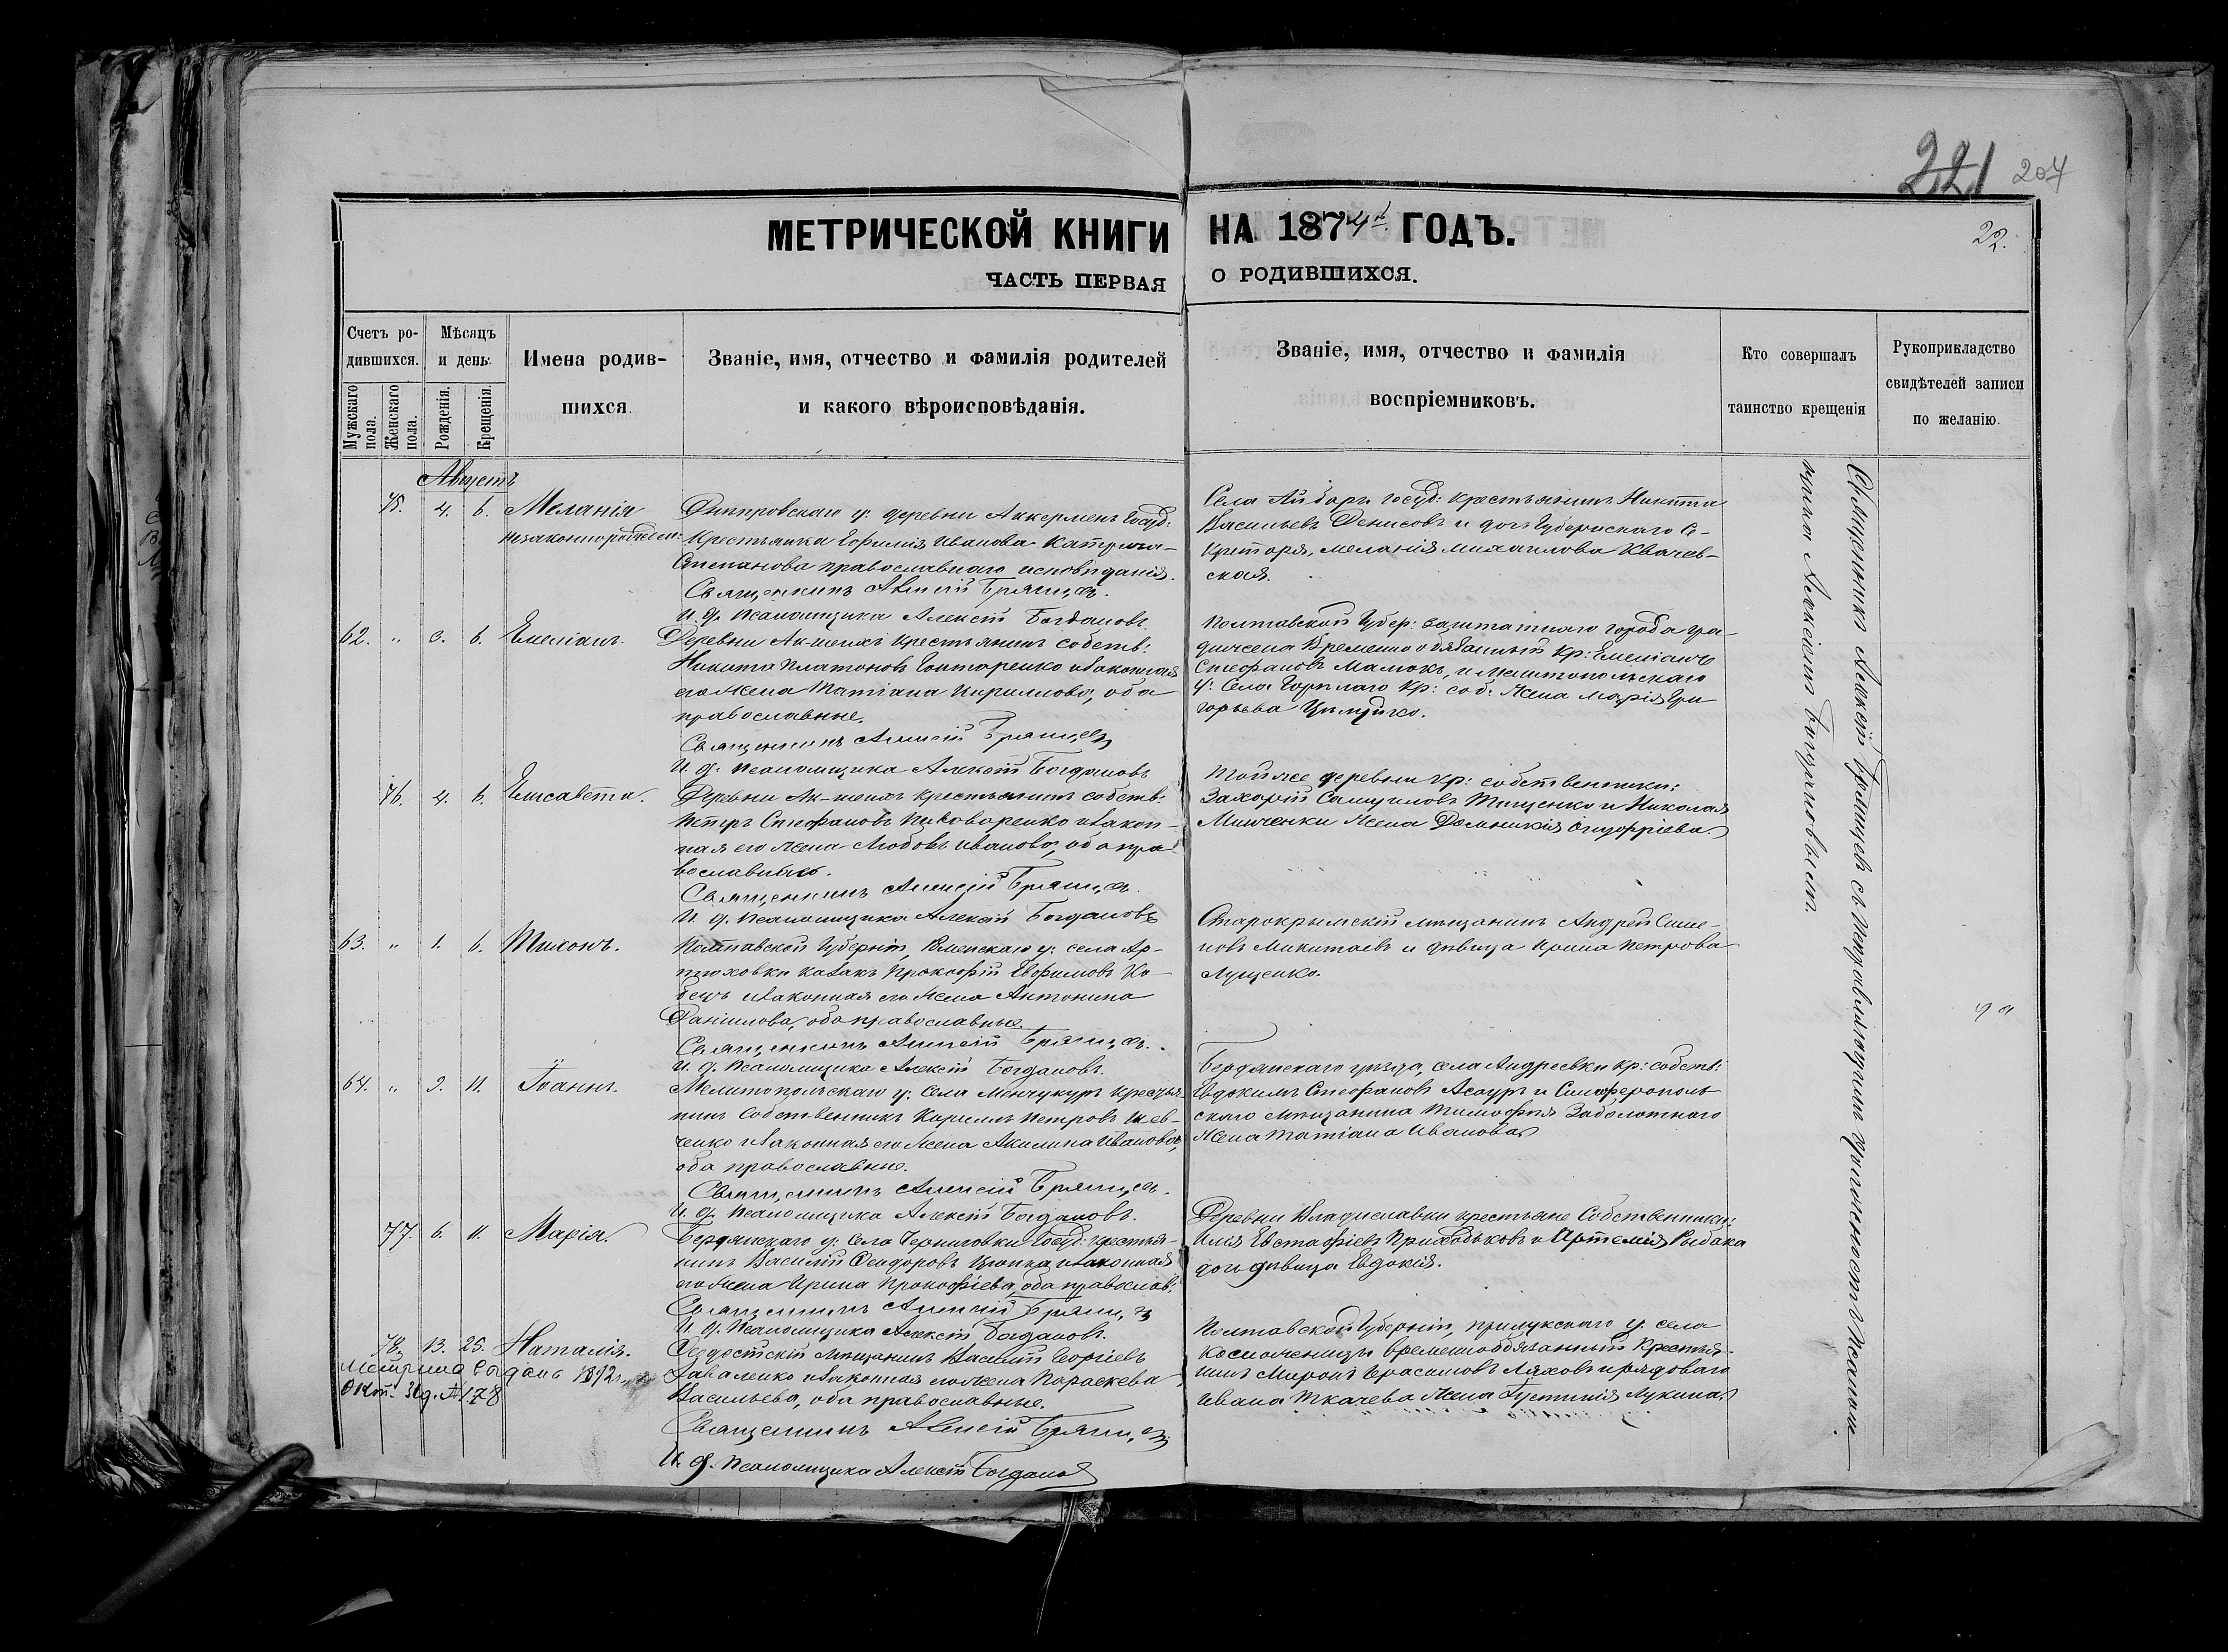 221 207
МЕТРИЧЕСКОЙ КНИГИ НА 1874й ГОДЪ.
22.
ЧАСТЬ ПЕРВАЯ О РОДИВШИХСЯ.
Счетъ ро-
дившихся.
Мужскаго пола.
Женскаго пола.
Мѣсяцъ
и день.
Рожденія.
Крещенія.
Имена родив-
шихся.
Званіе, имя, отчество и фамилія родителей
и какого вѣроисповѣданія.
Званіе, имя, отчество и фамилія
воспріемниковъ.
Кто совершалъ
таинство крещенія
Рукоприкладство
свидѣтелей записи
по желанію.
Августъ
75. 4. 6. Меланія
незаконнорожден:
Днѣпровскаго у: деревни Аккерменъ Госуд:
Крестьянка Ефимія Иванова
Степанова православнаго исповѣданія.
Священникъ Алексій Брянцев
И. д. Псаломщика Алексѣй Богдановъ
Села Айбаръ госуд: крестьянинъ Никита
Васильевъ Денисовъ и дочь Губернскаго Се-
кретаря, меланія михаилова Квачев-
ская.
62. " 3. 6. Емеліанъ.
Деревни Ак-шеихъ крестьянинъ собств:
Никита Платоновъ Гонтаренко и законная
его жена Татіана Кириллова, оба
православные.
Священникъ Алексій Брянцев
И. д. Псаломщика Алексѣй Богдановъ
Полтавской Губер: заштатнаго города Гра-
дижска Временно обязанный кр: Емеліанъ
Стефановъ Мамокъ, и Мелитопольскаго
у: Села Горѣлаго кр: соб: жена Марія Гри
горьева
76. 4. 6. Елисавета.
Деревни Ак-шеихъ крестьянинъ собств:
Петръ Стефановъ Пивоваренко и закон-
ная его жена Любовь Иванова, оба пра-
вославные.
Священникъ Алексій Брянцев
И. д. Псаломщика Алексѣй Богдановъ
Той же деревни кр: собственники:
Захарій Самуиловъ Тищенко и Николая
Минченки жена Домникія
63. " 1. 6. Тихонъ.
Полтавской Губерніи, Роменскаго у: села Ар-
тюховки казакъ Прокофій Евфимовъ Ко-
бецъ и законная его жена Антонина
Даніилова, оба православные.
Священникъ Алексій Брянцев
И. д. Псаломщика Алексѣй Богдановъ.
Старокрымскій мѣщанинъ Андрей Симе-
новъ Микитаевъ и дѣвица Ирина Петрова
Лущенко.
64. " 9. 11. Іоаннъ.
Мелитопольскаго у: Села Менчукуръ крестья-
нинъ Собственникъ Кириллъ Петровъ Шев-
ченко и законная его жена Акилина Иванова,
оба православные.
Священникъ Алексій Брянцев
И. д. Псаломщика Алексѣй Богдановъ.
Бердянскаго уѣзда, села Андреевки кр: собств:
Евдокимъ Стефановъ Асауръ и Симферополь-
скаго мѣщанина Тимофея Заболотнаго
жена Татіана Иванова
77. 6. 11. Марія.
Бердянскаго у: Села Черниговки Госуд: крестья-
нинъ Василій Ѳеодоровъ и законная
его жена Ирина Прокофіева, оба православ:
Священникъ Алексій Брянцев
И. д. Псаломщика Алексѣй Богдановъ.
Деревни Владиславки крестьяне Собственники:
Илія Евстафіевъ Приходьковъ и Артемія Рыбака
дочь дѣвица Евдокія.
78. 13. 25. Наталія.
Метрика выдана 1892 г.
Окт. 30 д. № 178
Ѳеодосійскій мѣщанинъ Василій Георгіевъ
Заваленко и законная его жена Параскева
Васильева, оба православные.
Священникъ Алексій Брянцев
И. д. Псаломщика Алексѣй Богдановъ
Полтавской Губерніи, прилукскаго у: села
временнообязанный Крестья-
нинъ Миронъ Герасимовъ Ляховъ и рядоваго
Ивана Ткачева жена Іустинія Лукина
Священникъ Алексѣй Брянцевъ съ исправляющимъ должность Псалом-
щика Алексѣемъ Богдановымъ